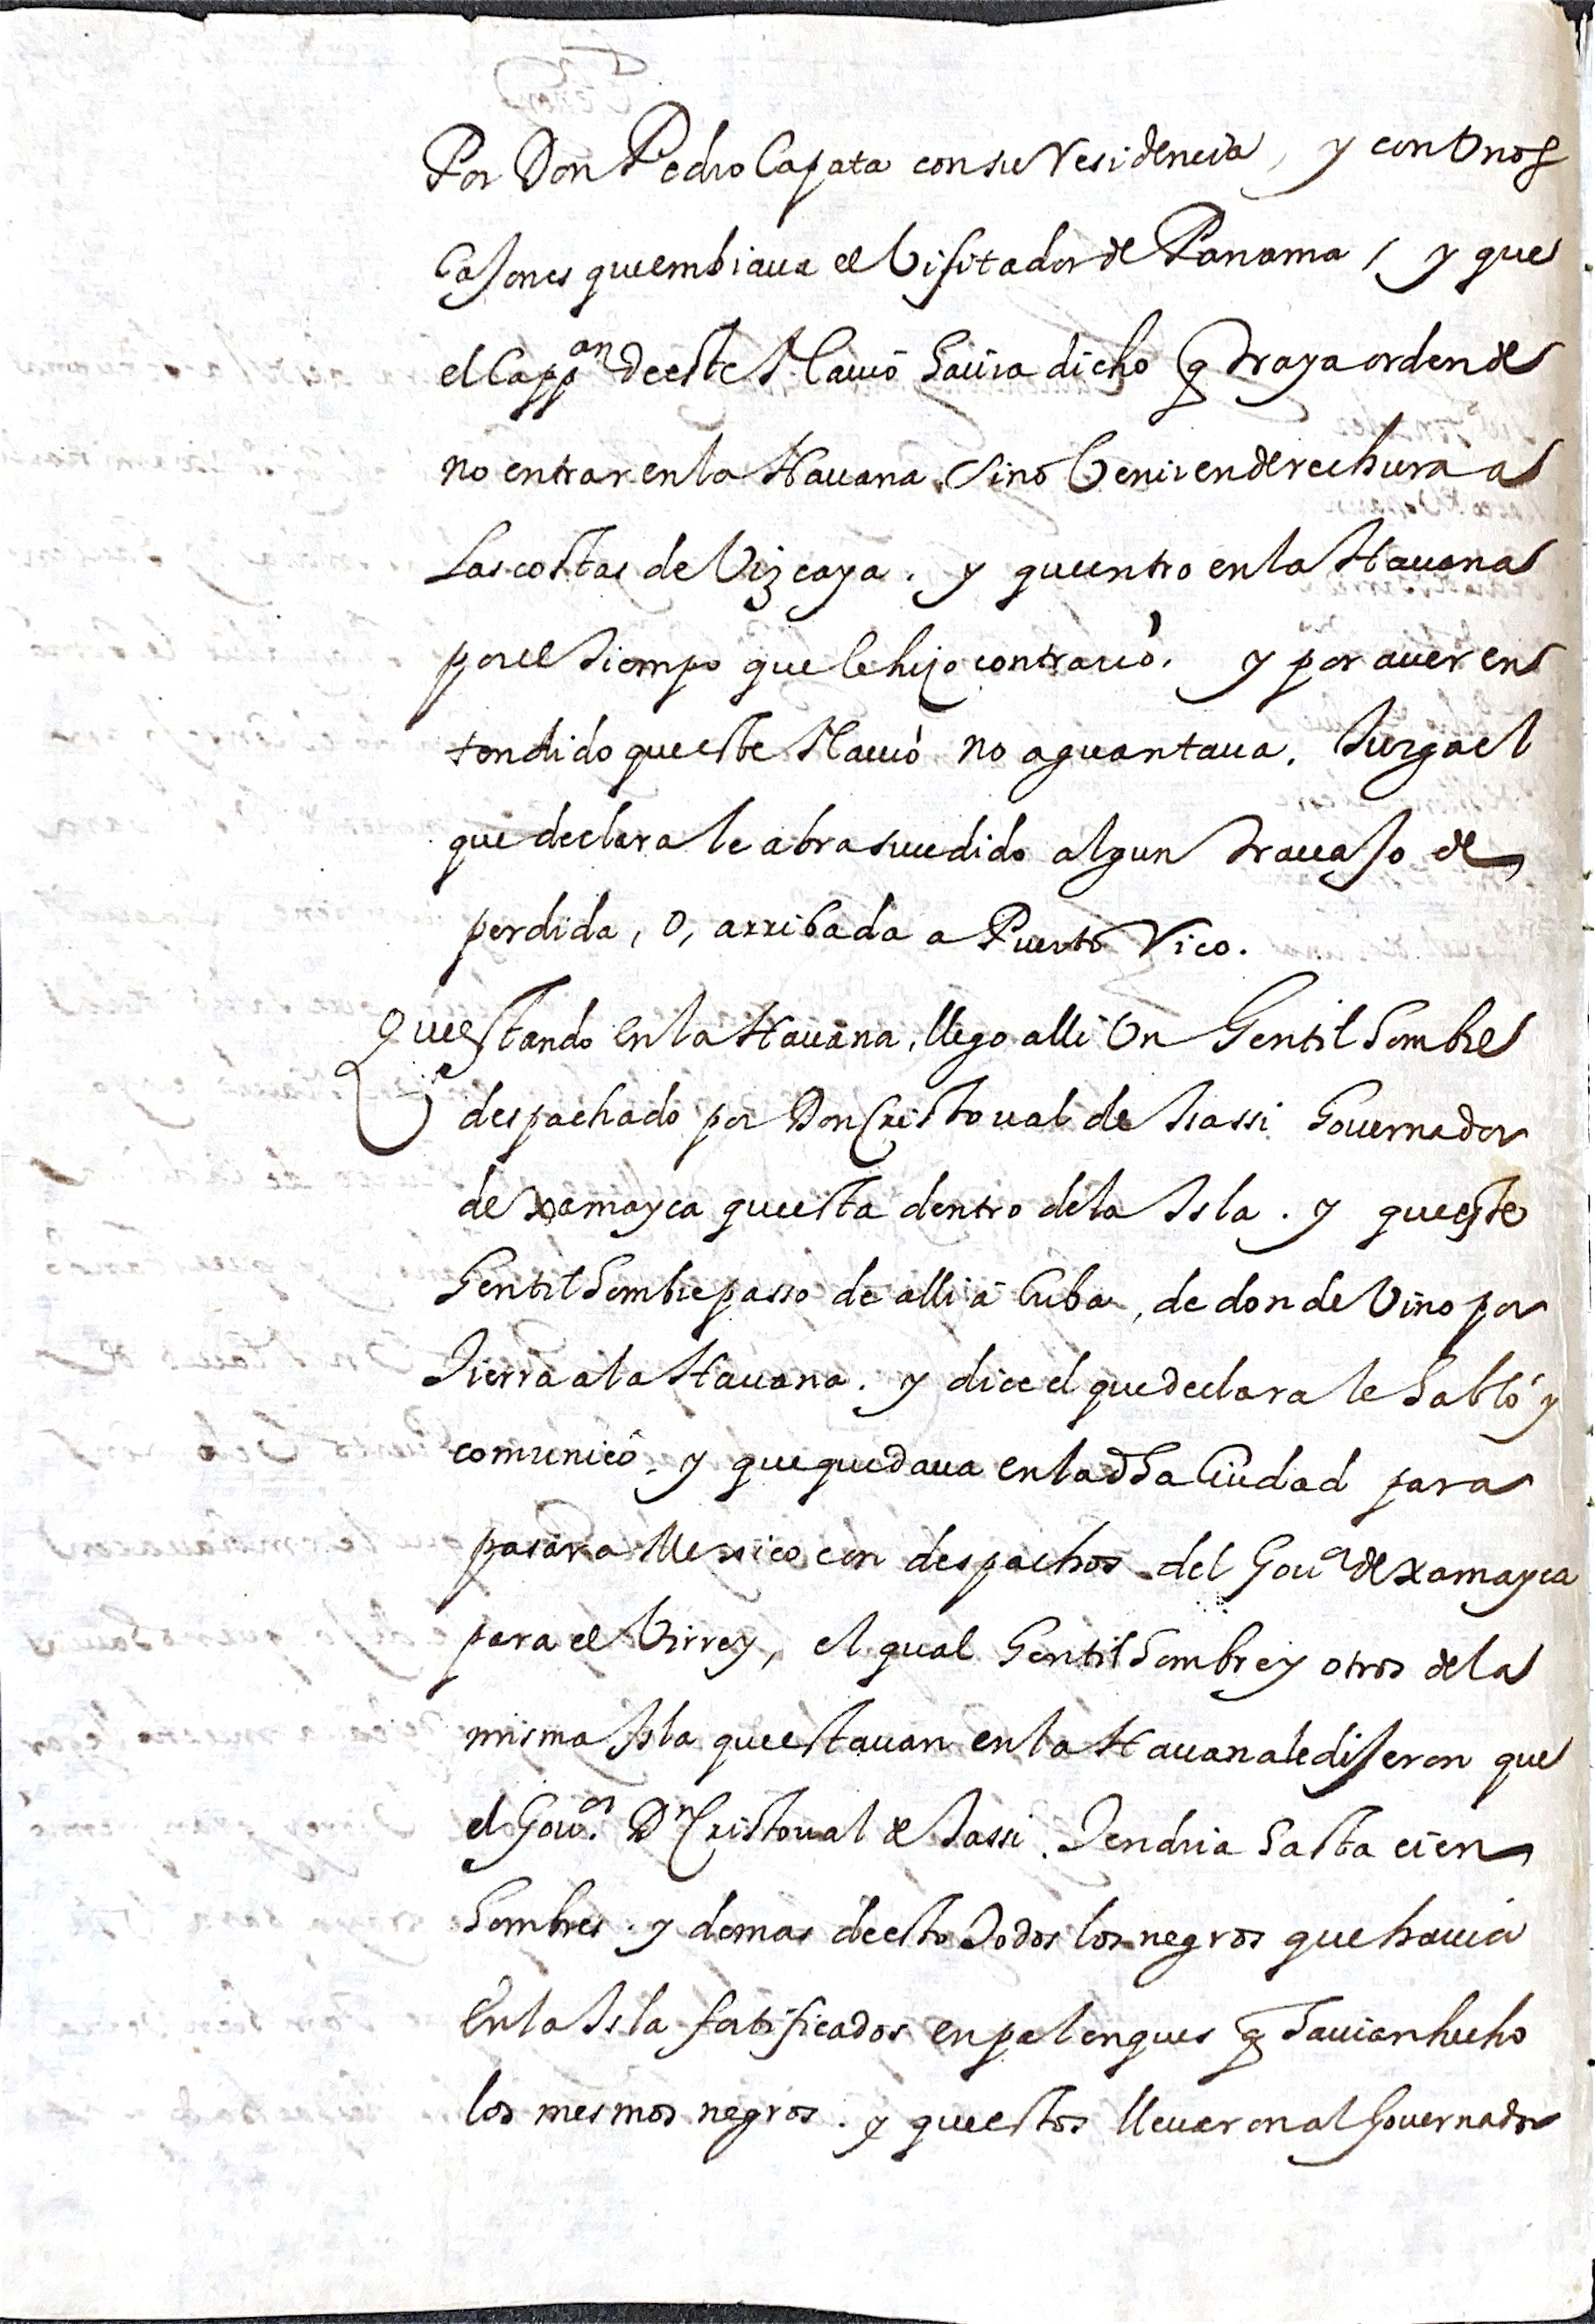 Por Don Pedro Capata con su Residencia, y con Vnos
Cajones que embiaua el Visitador de Panama, y que
el Capp.an de este Nauio hauia dicho q traya orden de
no entrar en la Hauana, sino Venir en derechura a
Las costas de Vizcaya. y que entro en la Hauana
por el tiempo que le hizo contrario. y por auer en
tendido que este Nauio no aguantaua. Iuzga el
que declara le abra sucedido algun trauajo de
perdida, o, arribada a Puerto Rico.
Que estando en la Hauana, llego alli Vn Gentil hombre
despachado por Don Cristoual de Isassi Gouernador
de Xamayca que esta dentro de la Isla. y que este
Gentil hombre passo de alli a Cuba, de donde Vino por
Tierra a la Hauana. y dice el que declara le habló y
comunicó. y que quedaua en la dha Ciudad para
pasar a Messico con despachos del Gou.or de Xamayca
para el Virrey, el qual Gentil hombre y otros de la
misma Isla que estauan en la Hauana le dijeron que
el Gou.or Dn Cristoual de Isassi. Tendria hasta cien
hombres. y demas de esto Todos los negros que hauia
En la Isla fortificados en palenques q hauian hecho
los mesmos negros. y que estos lleuaron al Gouernador